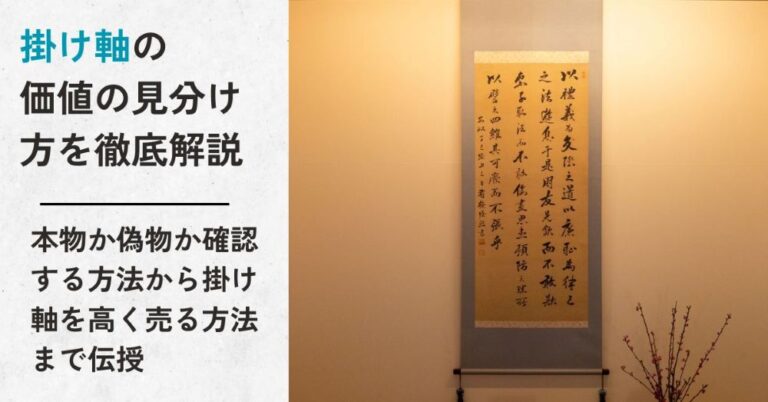 掛け軸の
価値の見分け
方を徹底解説
本物か偽物か確認
する方法から掛け
軸を高く売る方法
まで伝授
以禮義為交際之道以廉恥為律己
之法遊息于是朋友見而不敢欺
法而不敢思患預防之理所
以譬之四維其可廢而不張乎